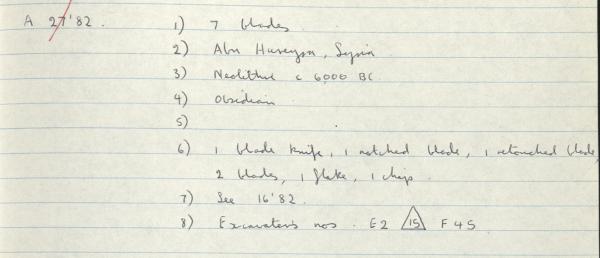 A 27'82. 1) 7 blades.
2) Abu Hureyra, Syria
3) Neolithic c 6000 BC.
4) Obsidian
5)
6) 1 blade knife, 1 notched blade, 1 retouched blade,
2 blades, 1 flake, 1 chip.
7) See 16'82.
8) Excavators nos. E2 15 F45